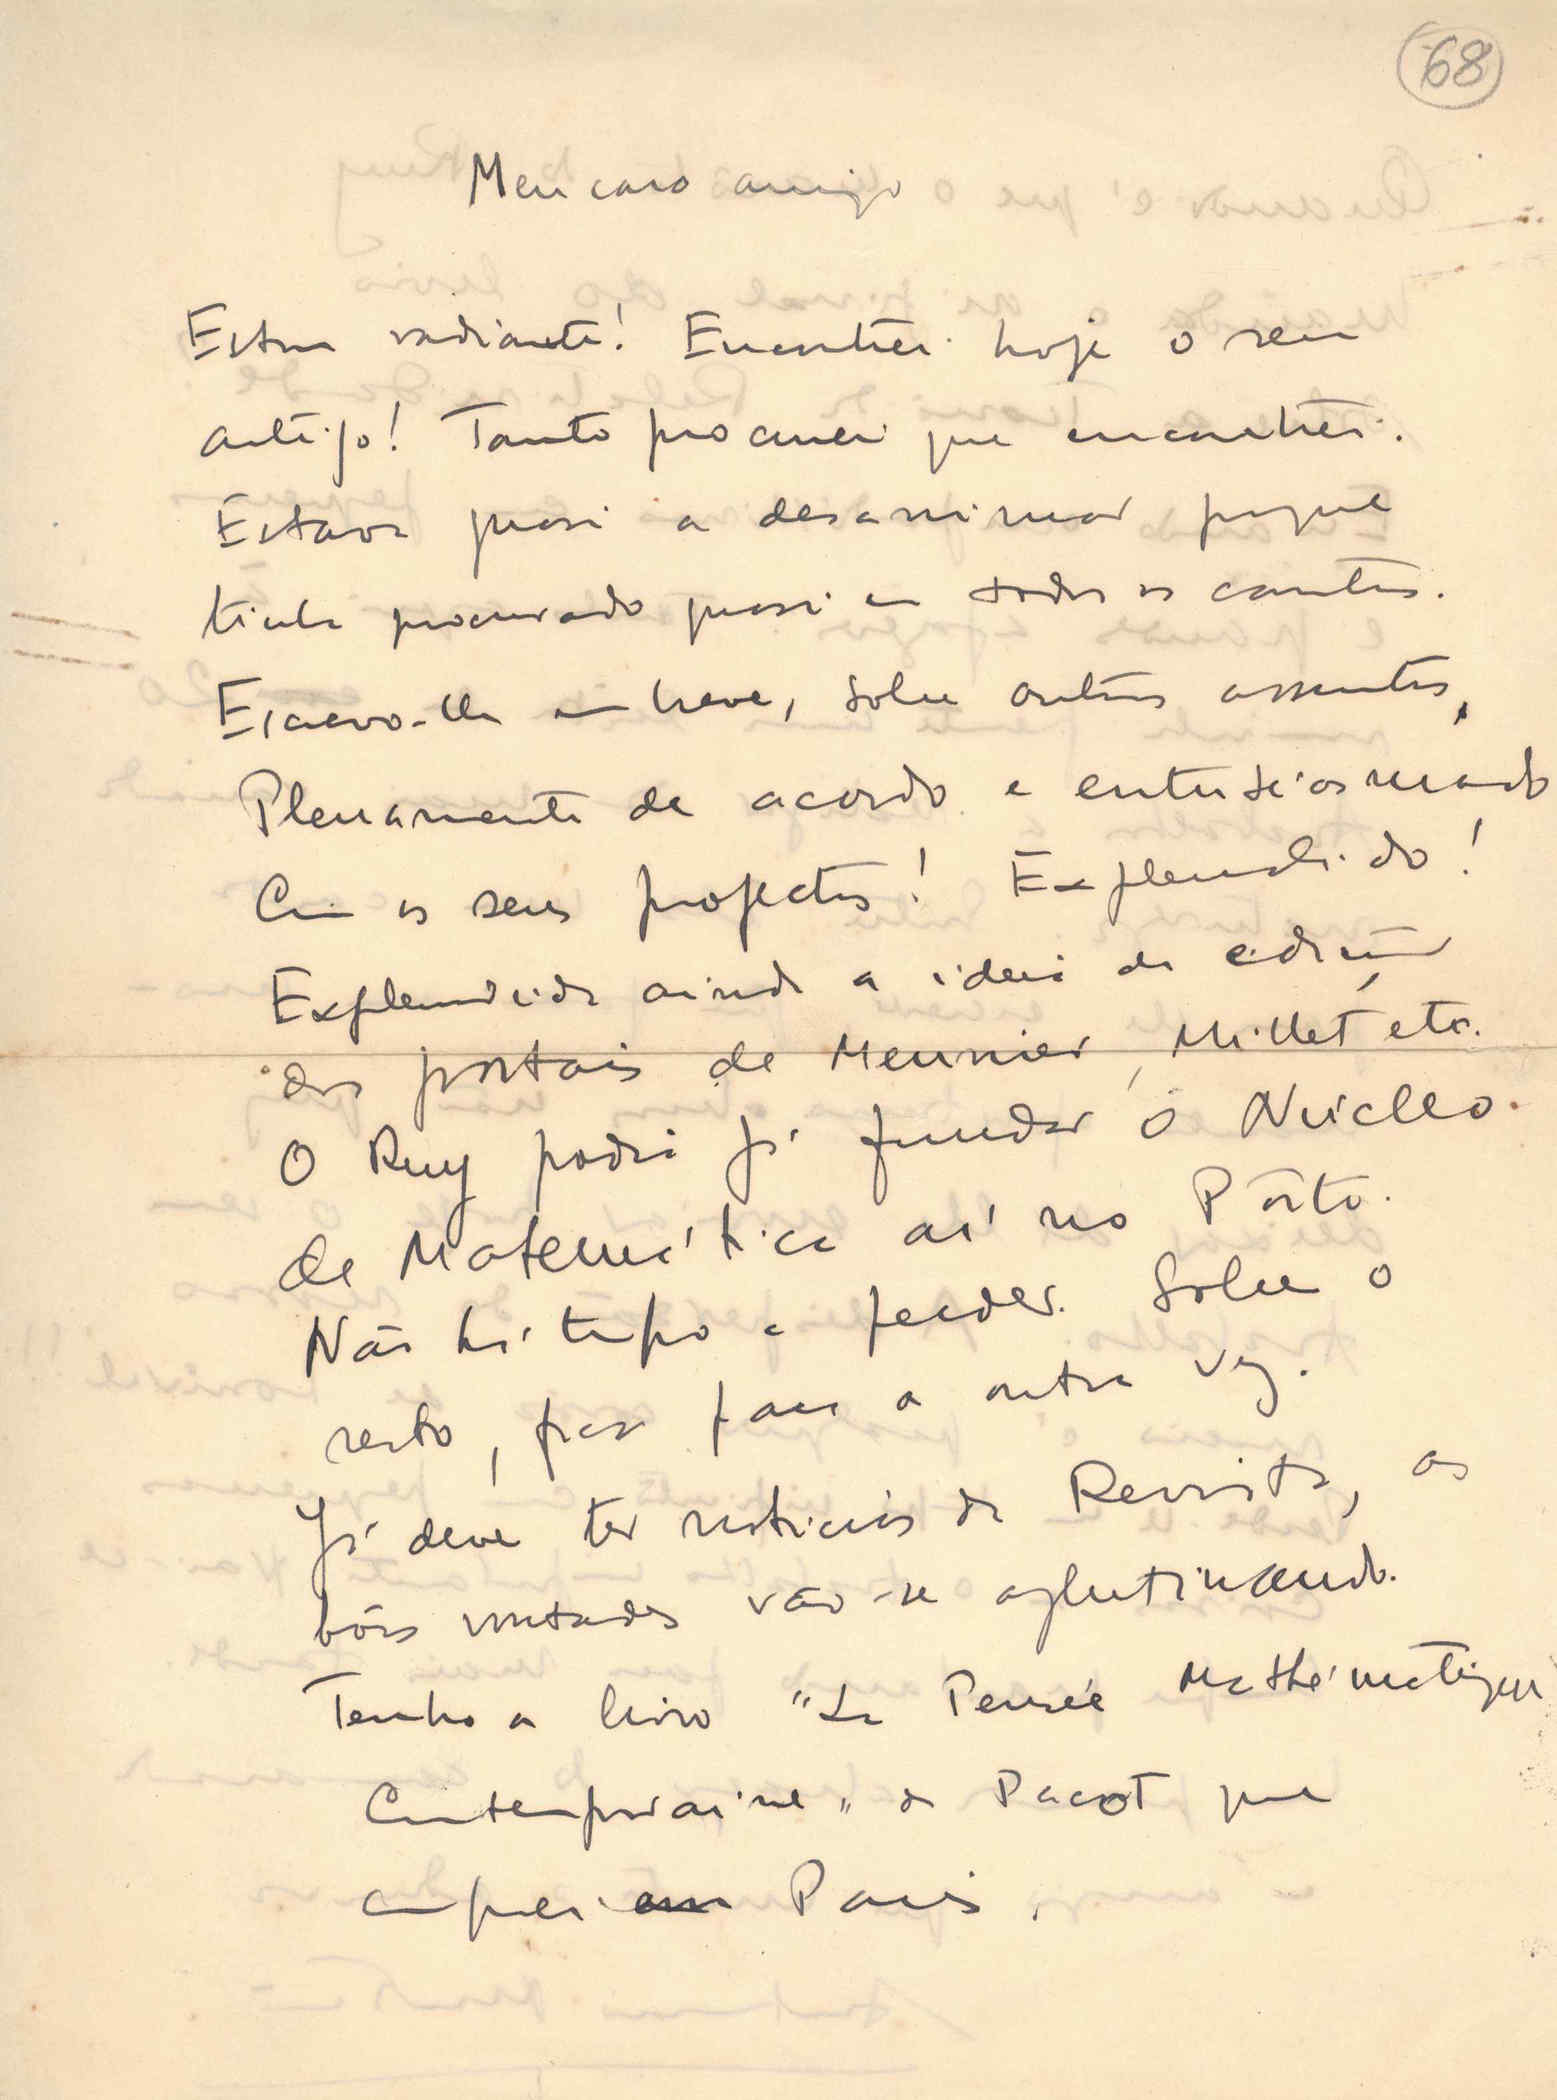 68
Meu caro amigo
Estou radiante! Encontrei hoje o seu
artigo! Tanto procurei que encontrei.
Estava quasi a desanimar porque
tinha procurado quasi em todos os cantos.
Escrevo-lhe em breve, sobre outros assuntos,
Plenamente de acordo e entusiasmado
Com os seus projectos! Explendido!
Explendida ainda a ideia da edição
dos postais de Meunier, Millet etc.
O Ruy podia já fundar o Núcleo
de Matemática aí no Pôrto.
Não há tempo a perder. Sobre o
resto, fica para a outra vez.
Já deve ter noticias da Revista, as
bôas vontades vão-se aglutinando.
Tenho o livro "La Pensée Mathématique
Contemporaine" de Pacot que
comprei em Paris.